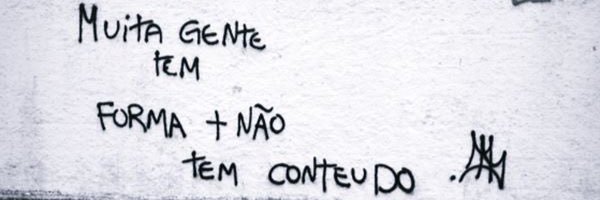 MUITA GENTE
TEM
FORMA + NÃO
TEM CONTEUDO